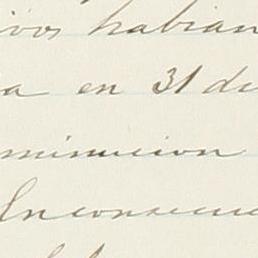 ivos habian
a en 31 de
minucion
En consecue